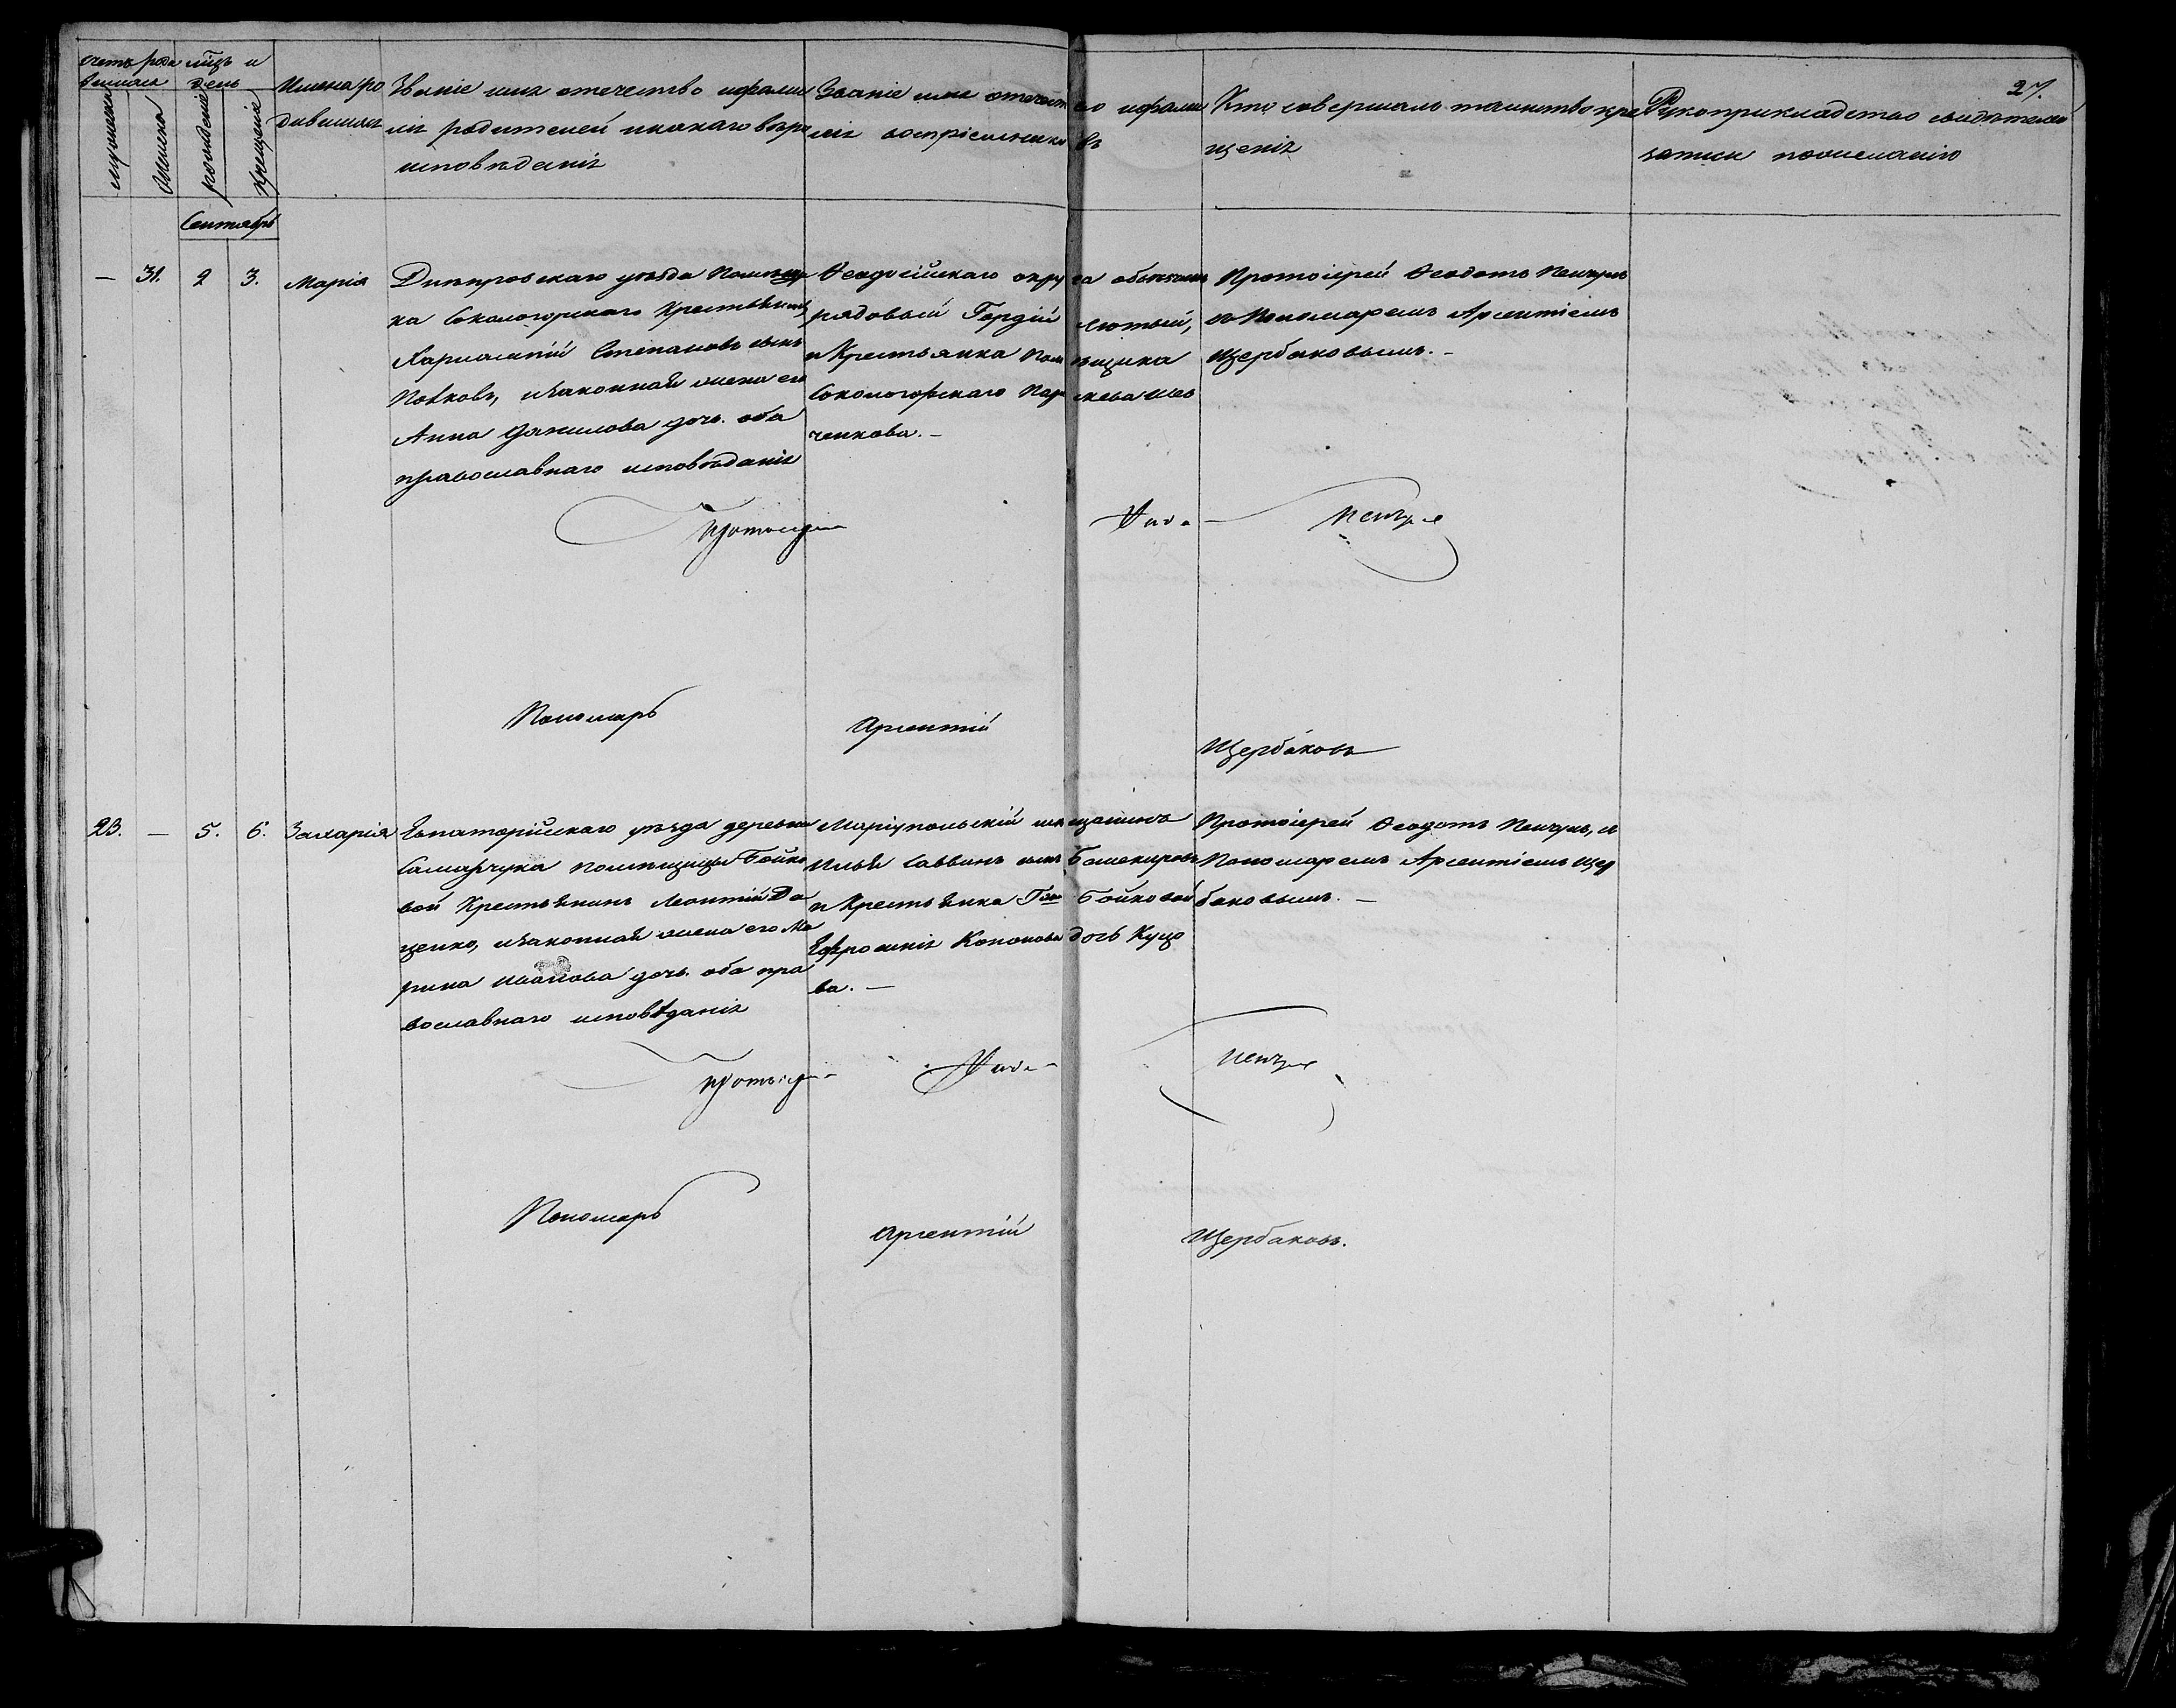 27.
Счетъ роди
вшихся
мужеска
женска
мѣсяцъ и
день
рожденіе
крещеніе
Имена ро
дившихся
Званіе имя отечество и фами
лія родителей и какаго вѣро
исповѣданія
Званіе имя отечество и фами
лія воспріемниковъ
Кто совершалъ таинство кре
щенія
Рукоприкладство свидѣтелей
записи по желанію
Сентябрь
— 31. 2 3. Марія
Днѣпровскаго уѣзда помѣщи
ка Сокологорскаго Крестьянинъ
Харлампій Степановъ сынъ
Поповъ, и законная жена его
Анна Данилова дочь. оба
православнаго исповѣданія
Ѳеодосійскаго округа
рядовый Гордій Лютый,
и Крестьянка помѣщика
Сокологорскаго Параскева Шев
ченкова. —
Протоіерей Ѳеодотъ
съ Пономаремъ Арсентіемъ
Щербаковымъ. —
Протоіерей
Пономарь Арсентій Щербаковъ
23. — 5. 6. Захарія
Евпаторійскаго уѣзда деревни
Самарчука помѣщицы Бойко
вой Крестьянинъ Леонтій Да
ценко, и законная жена его Ма
рина Иванова дочь. оба пра
вославнаго исповѣданія
Маріупольскій мѣщанинъ
Илья Саввинъ сынъ Башкировъ
и Крестьянка Гжи Бойковой
Евфросинія Кононова дочь Куцо
ва. —
Протоіерей Ѳеодотъ
Пономаремъ Арсентіемъ Щер
баковымъ. —
Протоіерей
Пономарь Арсентій Щербаковъ.